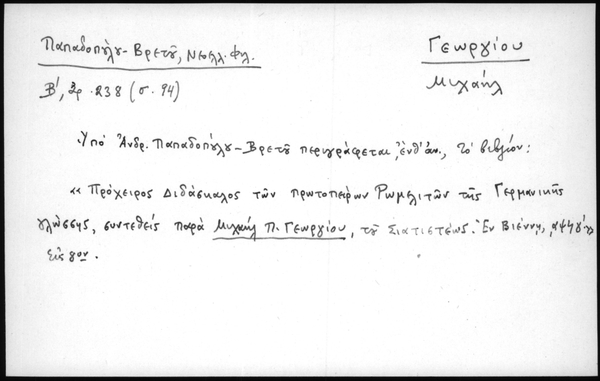 Παπαδοπȣ́λȣ-Βρετȣ͂, Νεοελλ. Φιλ.
Γεωργίου
Β', ἀρ. 238 (σ. 94)
Μιχαήλ
Ὑπὸ Ἀνδρ. Παπαδοπȣ́λȣ-Βρετȣ͂ περιγράφεται, ἔνθ' ἀν., τὸ βιβλίον:
«Πρόχειρος Διδάσκαλος τῶν πρωτοπείρων Ρωμελιτῶν τῆς Γερμανικῆς
γλώσσης, συντεθεὶς παρὰ Μιχαὴλ Π. Γεωργίου, τȣ͂ Σιατιστέως. Ἐν Βιέννῃ,
εἰς 8ον.